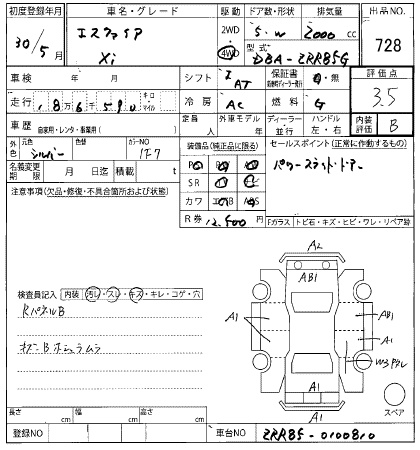 初度登録年月
30/5月
車名・グレード
エスクァイア
Xi
駆動
2WD
4WD
ドア数・形状
5・W
排気量
2000 cc
型式
DBA-ZRR85G
出品NO.
728
車検 年 月
シフト
AT
保証書
有・無
評価点
3.5
走行
18万6千590
キロ
マイル
冷房
AC
燃料
G
車歴
自家用・レンタ・事業用( )
定員
人
外車モデル
年
ディーラー
並行
ハンドル
左・右
内装
評価
B
外色
元色
シルバー
色替
カラーNO
1F7
名義変更
期限
月 日迄
積載 t
装備品(純正品に限る)
SR
カワ
R券
12,500円
セールスポイント(正常に作動するもの)
パワースライドドアー
Fガラス トビ石・キズ・ヒビ・ワレ・リペア跡
注意事項(欠品・修復・不具合箇所および状態)
検査員記入 内装 汚レ・スレ・キズ・キレ・コゲ・穴
RパネルB
A2
AB1
A1
AB1
A1
W3
A1
A1
スペア
長さ cm
幅 cm
高さ cm
登録NO
車台NO
ZRR85-0100810